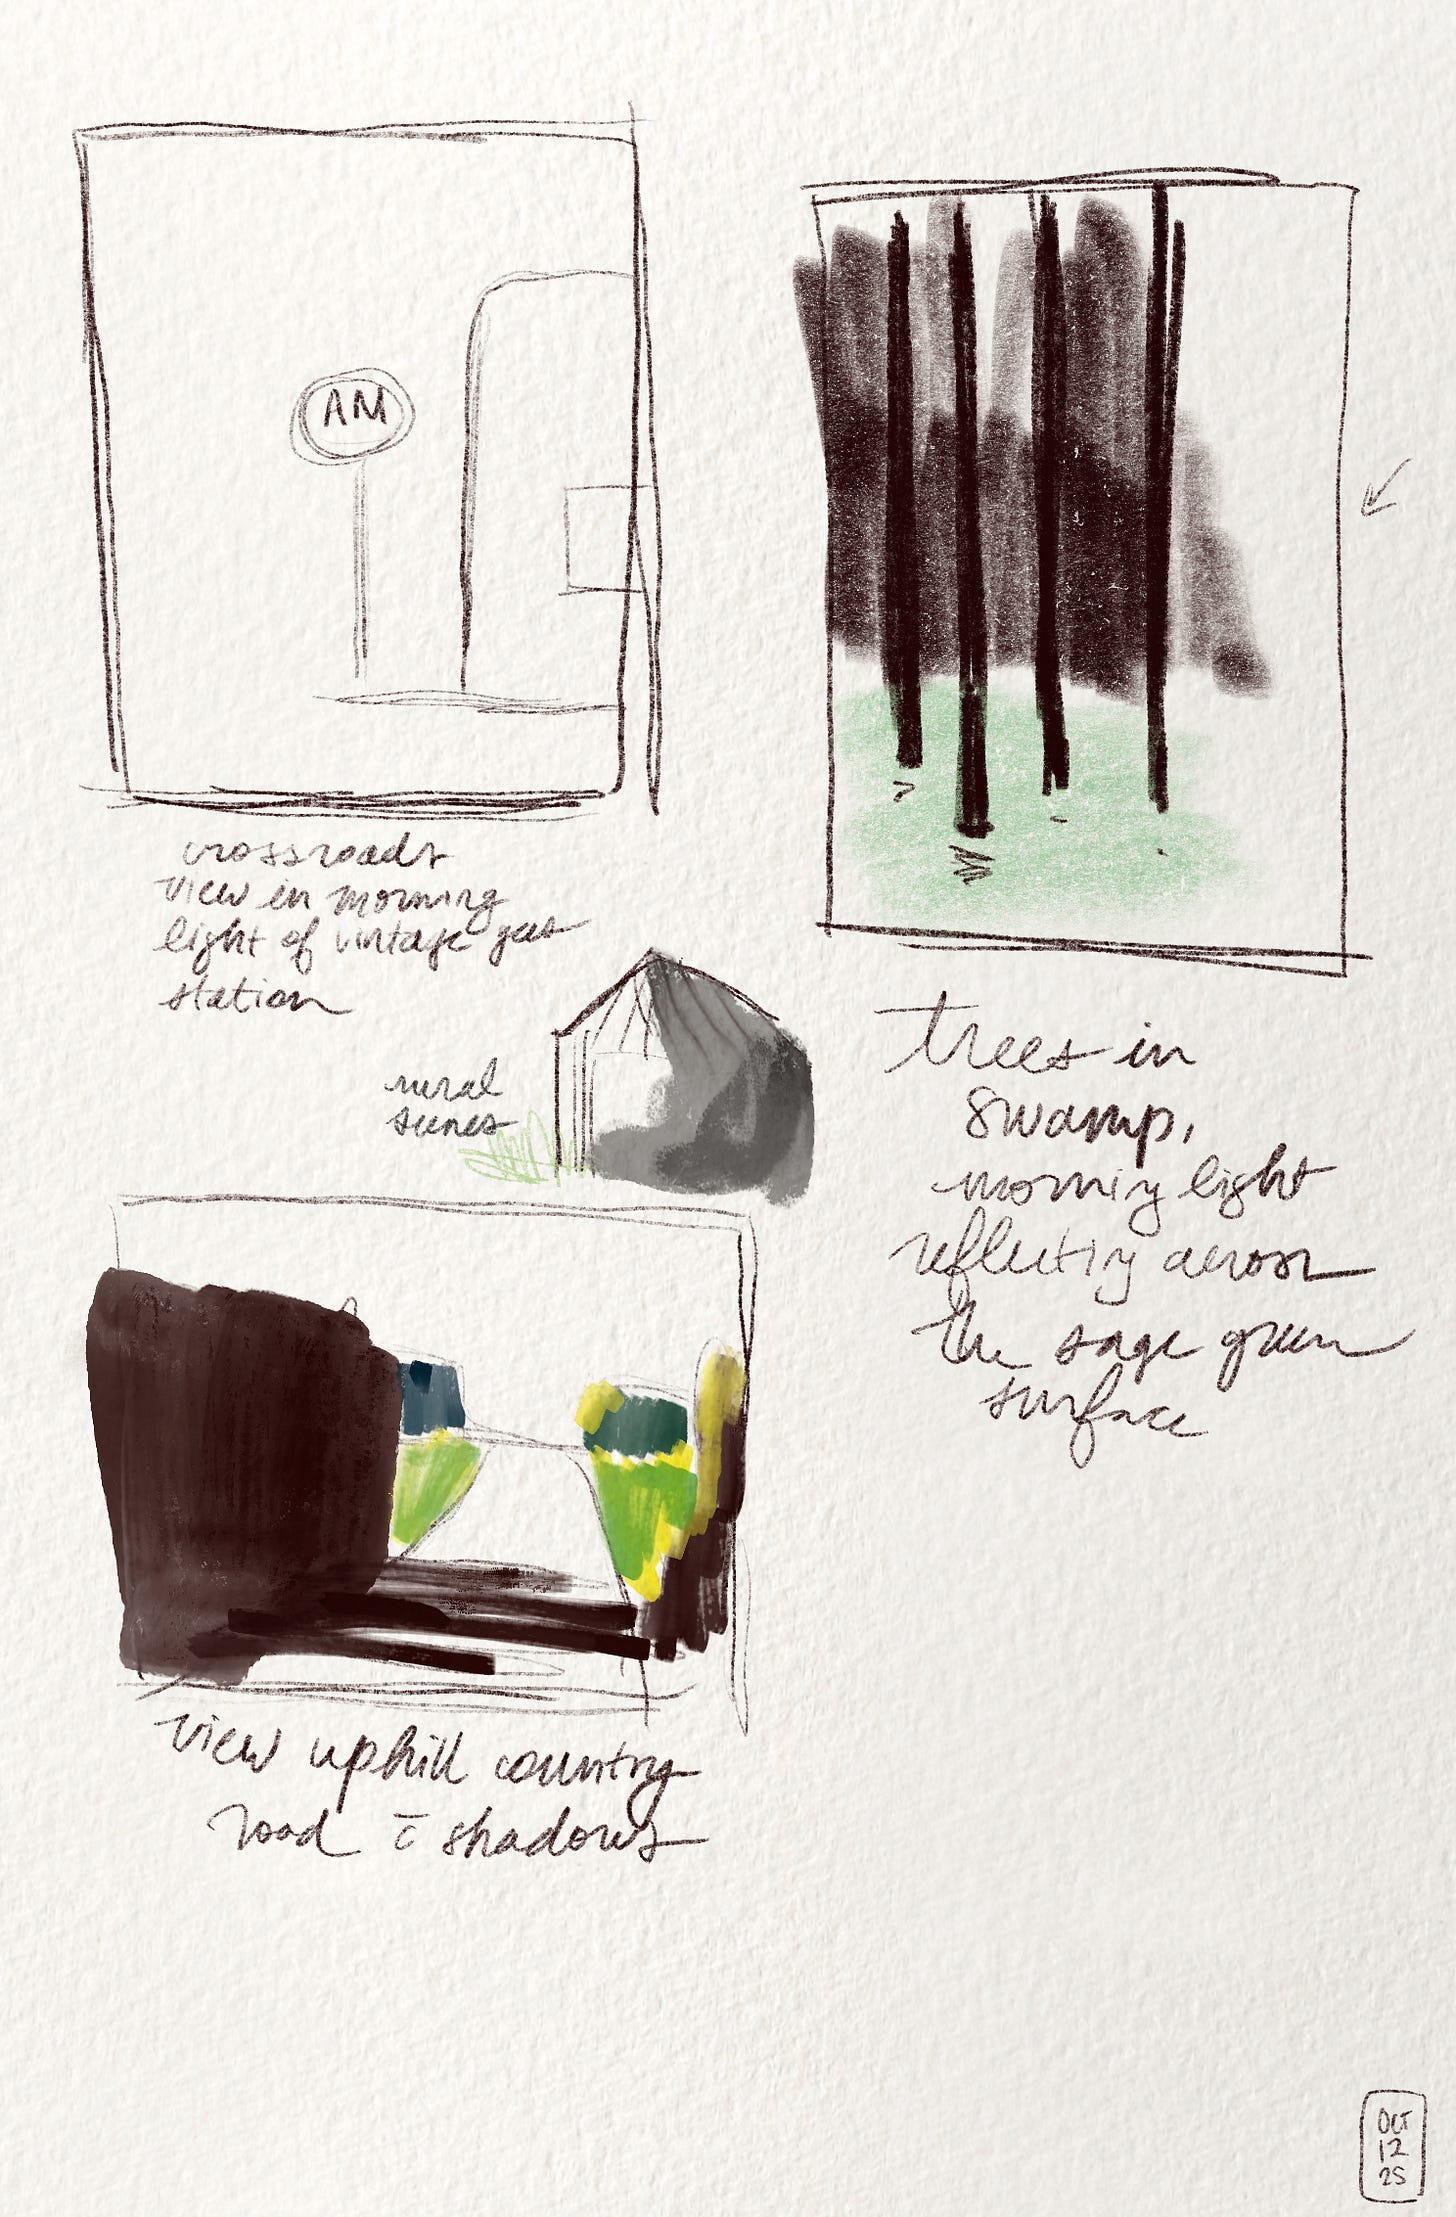 AM
crossroads
view in morning
light of vintage gas
station
rural
scenes
trees in
swamp,
morning light
reflecting across
the sage green
surface
view uphill country
road c̄ shadows
OCT
12
25